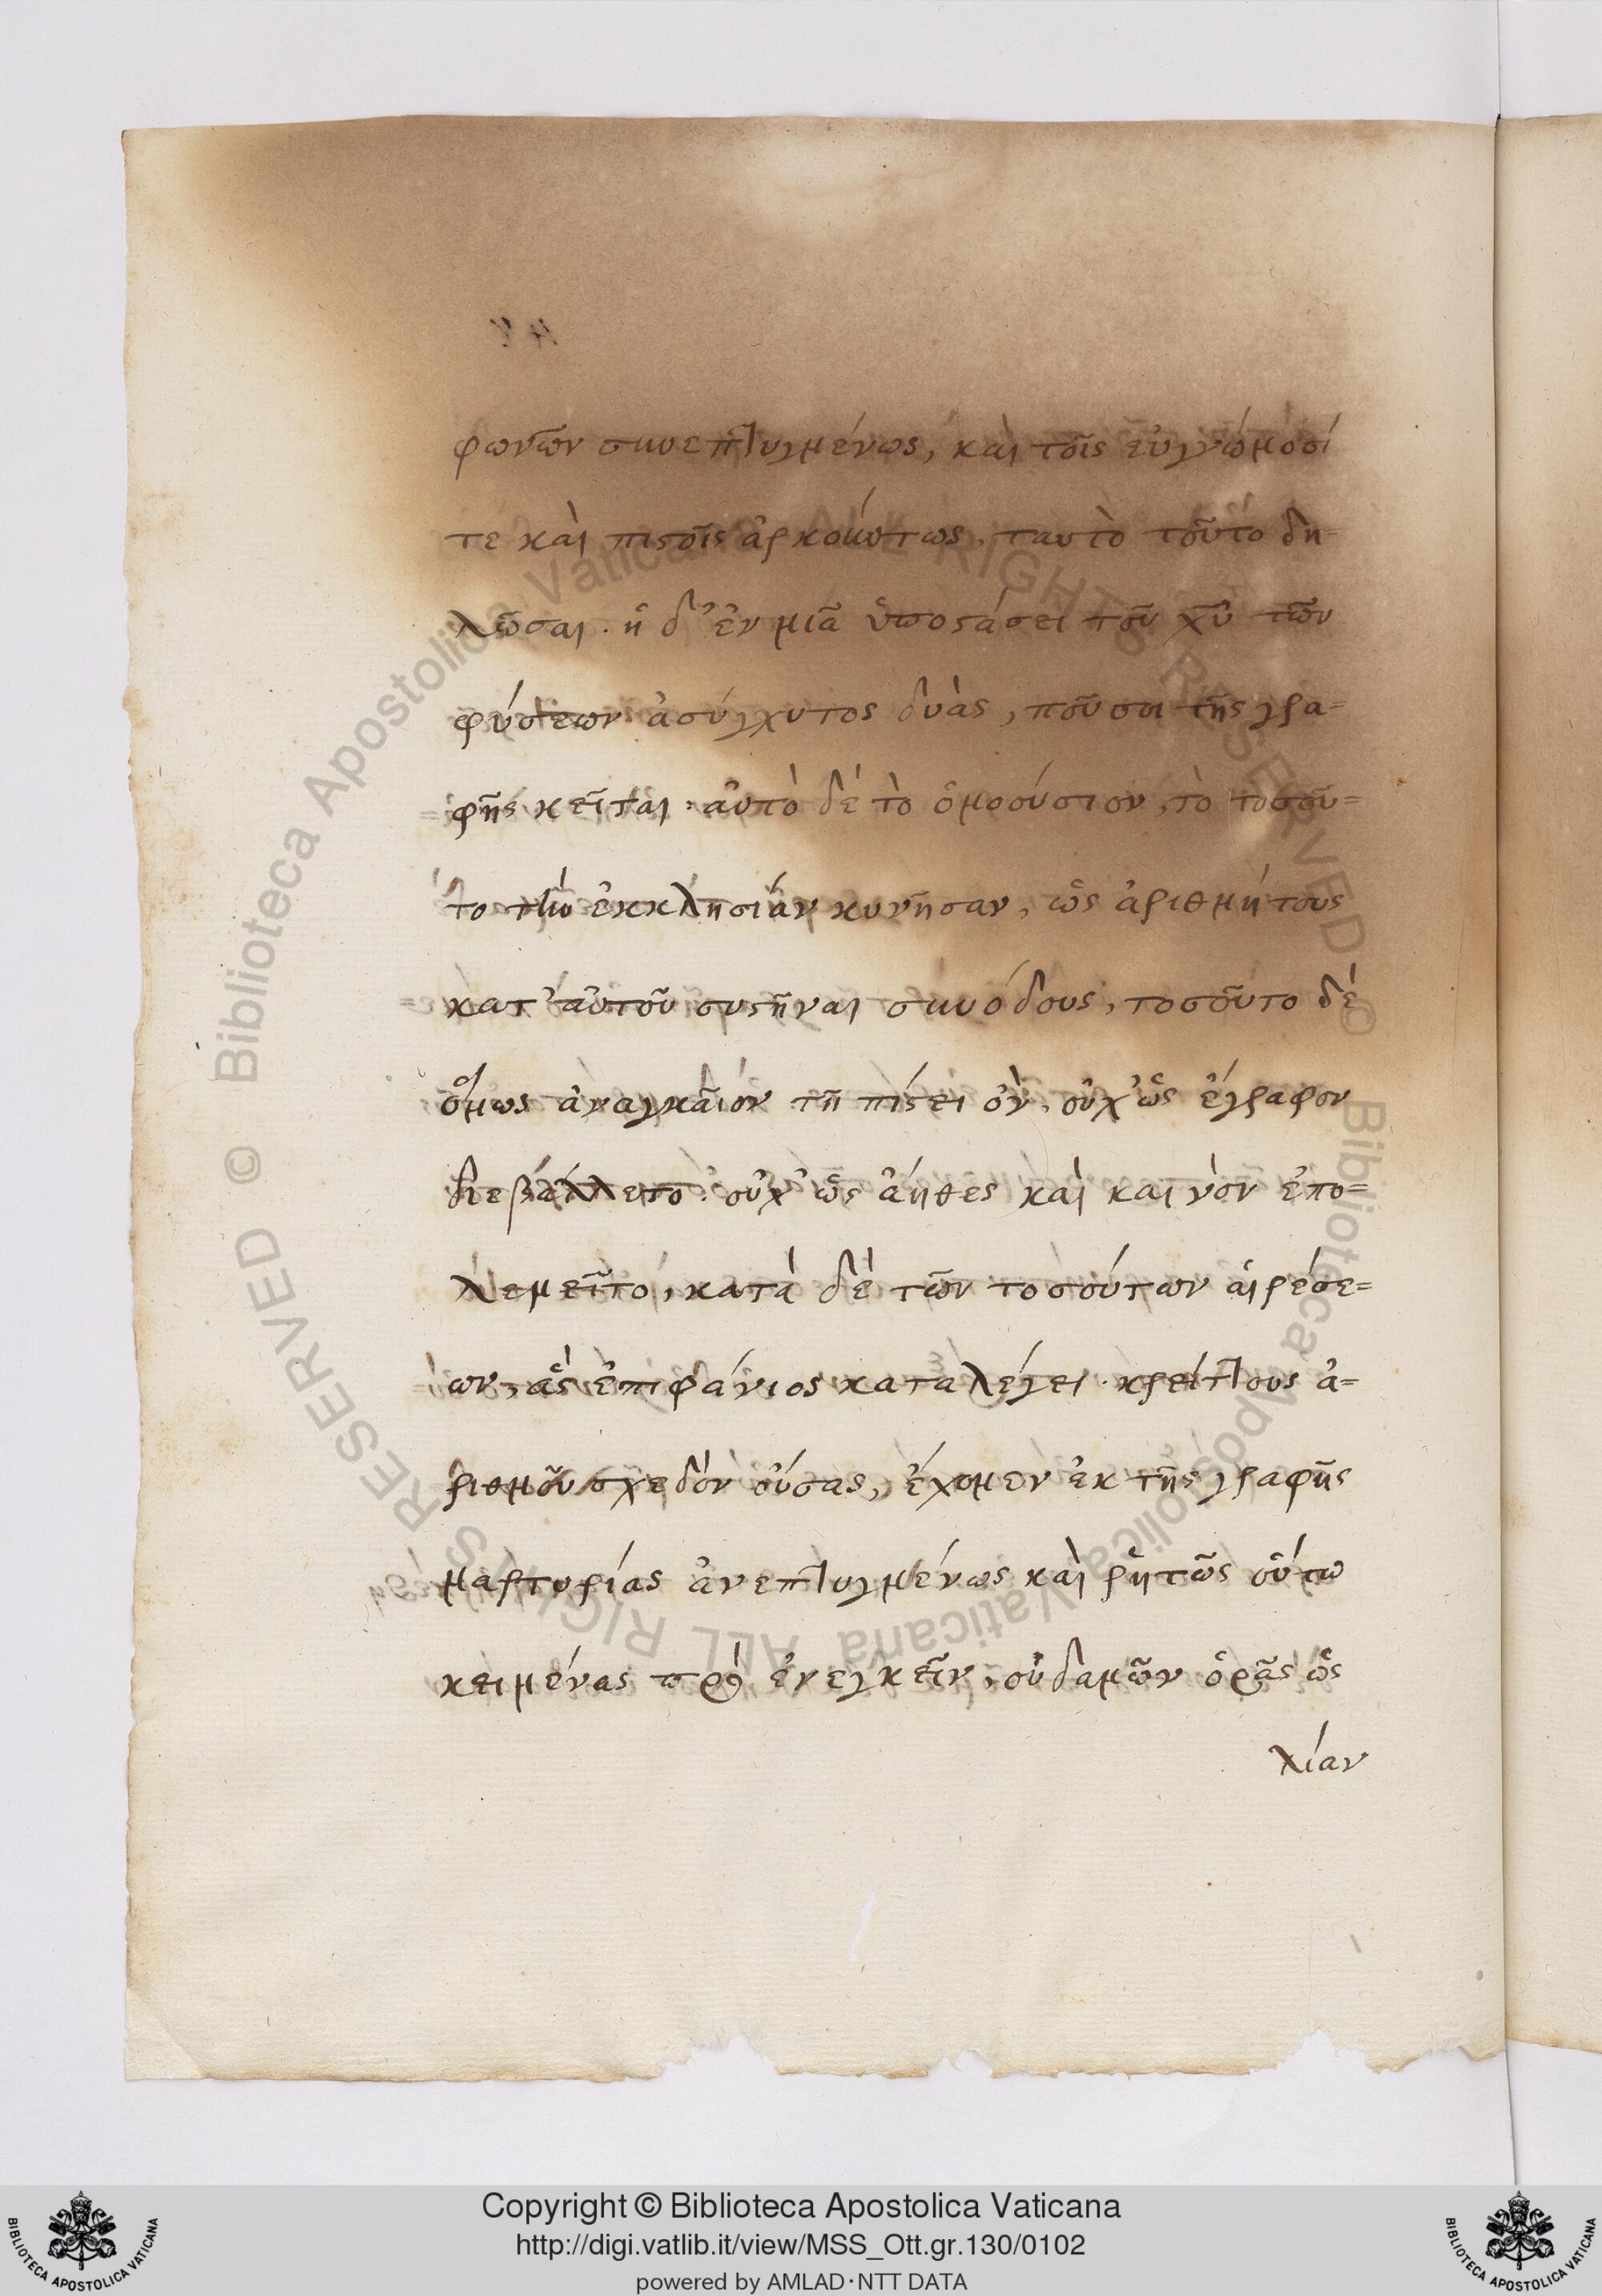 φωνῶν συνεπτυγμένως, καὶ τοῖς εὐγνώμοσί
τε καὶ πιστοῖς ἀρκούντως, ταυτὸ τοῦτο δη-
λῶσαι. ἡ δ' ἐν μιᾷ ὑποστάσει τοῦ χῦ τῶν
φύσεων ἀσύγχυτος δυὰς, ποῦ σοι τῆς γρα-
φῆς κεῖται. αὐτὸ δὲ τὸ ὁμοούσιον, τὸ τοσοῦ-
το τὴν ἐκκλησίαν κυνῆσαν, ὡς ἀριθμήτους
κατ' αὐτοῦ συστῆναι συνόδους, τοσοῦτο δὲ
ὅμως ἀναγκαῖον τῇ πίστει ὂν, οὐχ' ὡς ἔγραφον
διεβάλλετο. οὐχ' ὡς ἀήθες καὶ καινὸν ἐπο-
λεμεῖτο, κατὰ δὲ τῶν τοσούτων αἱρέσε-
ων, ἃς ἐπιφάνιος καταλέγει. κρείττους ἀ-
ριθμοῦ σχεδὸν οὔσας, ἔχομεν ἐκ τῆς γραφῆς
μαρτυρίας ἀνεπτυγμένως καὶ ῥητῶς οὕτω
κειμένας προενεγκεῖν, οὐδαμῶν ὁρᾷς ὡς
λίαν
Copyright © Biblioteca Apostolica Vaticana
http://digi.vatlib.it/view/MSS_Ott.gr.130/0102
powered by AMLAD·NTT DATA
BIBLIOTECA APOSTOLICA VATICANA
BIBLIOTECA APOSTOLICA VATICANA
© Biblioteca Apostolica Vaticana ALL RIGHTS RESERVED
© Biblioteca Apostolica Vaticana ALL RIGHTS RESERVED